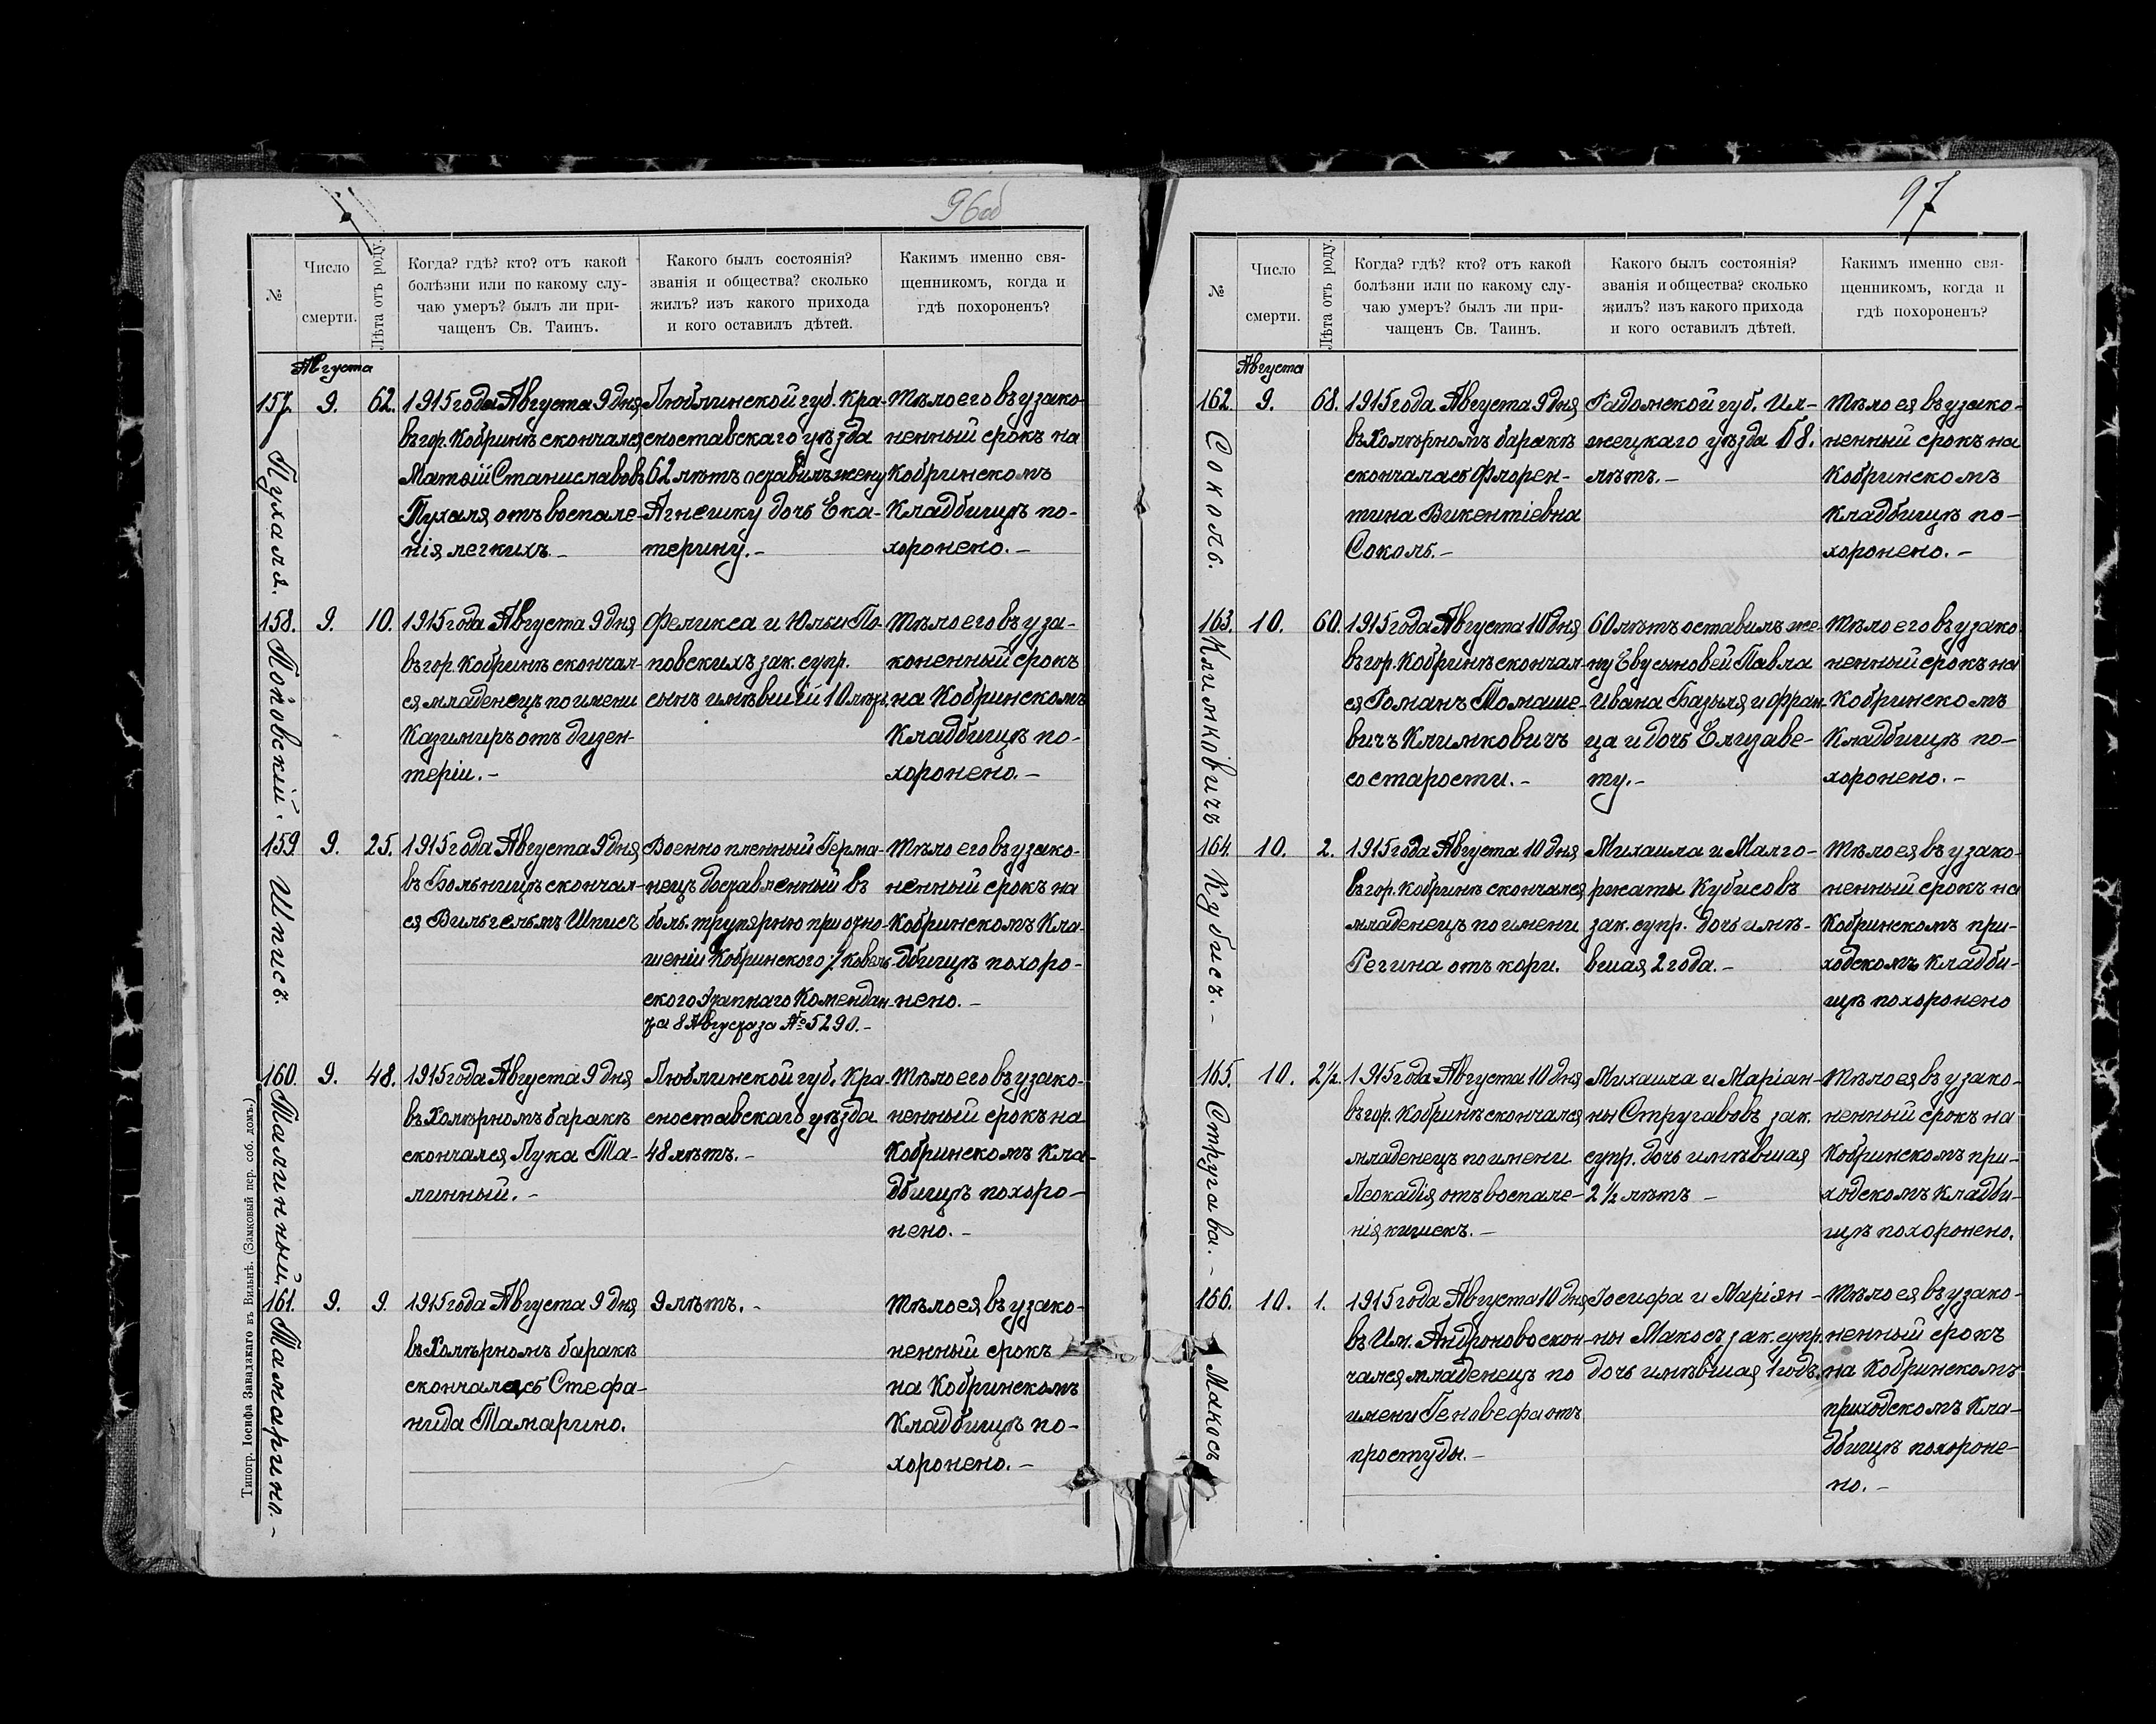 96об
№
Число
смерти.
Лѣта отъ роду.
Когда? гдѣ? кто? отъ какой
болѣзни или по какому слу-
чаю умеръ? былъ ли при-
чащенъ Св. Таинъ.
Какого былъ состоянія?
званія и общества? сколько
жилъ? изъ какого прихода
и кого оставилъ дѣтей.
Какимъ именно свя-
щенникомъ, когда и
гдѣ похороненъ?
Августа
157.
Пухаля.
9.
62.
1915 года Августа 9 дня
въ гор. Кобринѣ скончался
Матѳій Станиславовъ
Пухаля отъ воспале-
нія легкихъ. –
Люблинской губ. Кра-
сноставскаго уѣзда
62 лѣтъ оставилъ жену
Агнешку дочь Ека-
терину. –
Тѣло его въ узако-
ненный срокъ на
Кобринскомъ
Кладбищѣ по-
хоронено. –
158.
9.
10.
1915 года Августа 9 дня
въ гор. Кобринѣ скончал-
ся младенецъ по имени
Казимиръ отъ дизен-
теріи. –
Феликса и Юльи По-
повскихъ зак. супр.
сынъ имѣвшій 10 лѣтъ.
Тѣло его въ уза-
коненный срокъ
на Кобринскомъ
Кладбищѣ по-
хоронено. –
159
Шписъ.
9.
25.
1915 года Августа 9 дня
въ Больницѣ скончал-
ся Вильгельмъ Шписъ
Военно пленный Герма-
нецъ доставленный въ
боль. трупярню при отно-
шеніи Кобринского /. Ковель-
ского Этапнаго Комендан-
та 8 Августа за № 5290. –
Тѣло его въ узако-
ненный срокъ на
Кобринскомъ Кла-
дбищѣ похоро-
нено. –
160.
Талинный.
9.
48.
1915 года Августа 9 дня
въ Холѣрномъ баракѣ
скончался Лука Та-
линный. –
Люблинской губ. Кра-
сноставскаго уѣзда
48 лѣтъ. –
Тѣло его въ узако-
ненный срокъ на
Кобринскомъ Кла-
дбищѣ похоро-
нено. –
161.
Тамарино. –
9.
9.
1915 года Августа 9 дня
въ Холѣрномъ баракѣ
скончалась Стефа-
нида Тамарино.
9 лѣтъ. –
Тѣло ея въ узако-
ненный срокъ
на Кобринскомъ
Кладбищѣ по-
хоронено. –
Типогр. Іосифа Завадзкаго въ Вильнѣ. (Замковый пер. соб. домъ.)
97
№
Число
смерти.
Лѣта отъ роду.
Когда? гдѣ? кто? отъ какой
болѣзни или по какому слу-
чаю умеръ? былъ ли при-
чащенъ Св. Таинъ.
Какого былъ состоянія?
званія и общества? сколько
жилъ? изъ какого прихода
и кого оставилъ дѣтей.
Какимъ именно свя-
щенникомъ, когда и
гдѣ похороненъ?
Августа
162.
Соколъ.
9.
68.
1915 года Августа 9 дня
въ Холѣрномъ баракѣ
скончалась Флорен-
тина Викентіевна
Соколъ. –
Радомской губ. Ил-
жецкаго уѣзда 68.
лѣтъ. –
Тѣло ея въ узако-
ненный срокъ на
Кобринскомъ
Кладбищѣ по-
хоронено. –
163.
Климковичъ
10.
60.
1915 года Августа 10 дня
въ гор. Кобринѣ скончал-
ся Романъ Томаше-
вичъ Климковичъ
со старости. –
60 лѣтъ оставилъ же-
ну Еву сыновей Павла
Ивана Базыля и Фран-
ца и дочь Елизаве-
ту. –
Тѣло его въ узако-
ненный срокъ на
Кобринскомъ
Кладбищѣ по-
хоронено. –
164.
Кубисъ. –
10.
2.
1915 года Августа 10 дня
въ гор. Кобринѣ скончался
младенецъ по имени
Регина отъ кори.
Михаила и Малго-
ржаты Кубисовъ
зак. супр. дочь имѣ-
вшая 2 года. –
Тѣло ея въ узако-
ненный срокъ на
Кобринскомъ при-
ходскомъ кладби-
щѣ похоронено
165.
Стругава. –
10.
2½.
1915 года Августа 10 дня
въ гор. Кобринѣ скончался
младенецъ по имени
Леокадія отъ воспале-
нія кишекъ. –
Михаила и Маріан-
ны Стругавовъ зак.
супр. дочь имѣвшая
2½ лѣтъ –
Тѣло ея въ узако-
ненный срокъ на
Кобринскомъ при-
ходскомъ кладби-
щѣ похоронено.
166.
Макосъ
10.
1.
1915 года Августа 10 дня
въ Им. Андроново скон-
чался младенецъ по
имени Геновефа отъ
простуды. –
Іосифа и Маріян-
ны Макосъ зак. супр.
дочь имѣвшая 1 годъ.
Тѣло ея въ узако-
ненный срокъ
на Кобринскомъ
приходскомъ Кла-
дбищѣ похороне-
но. –